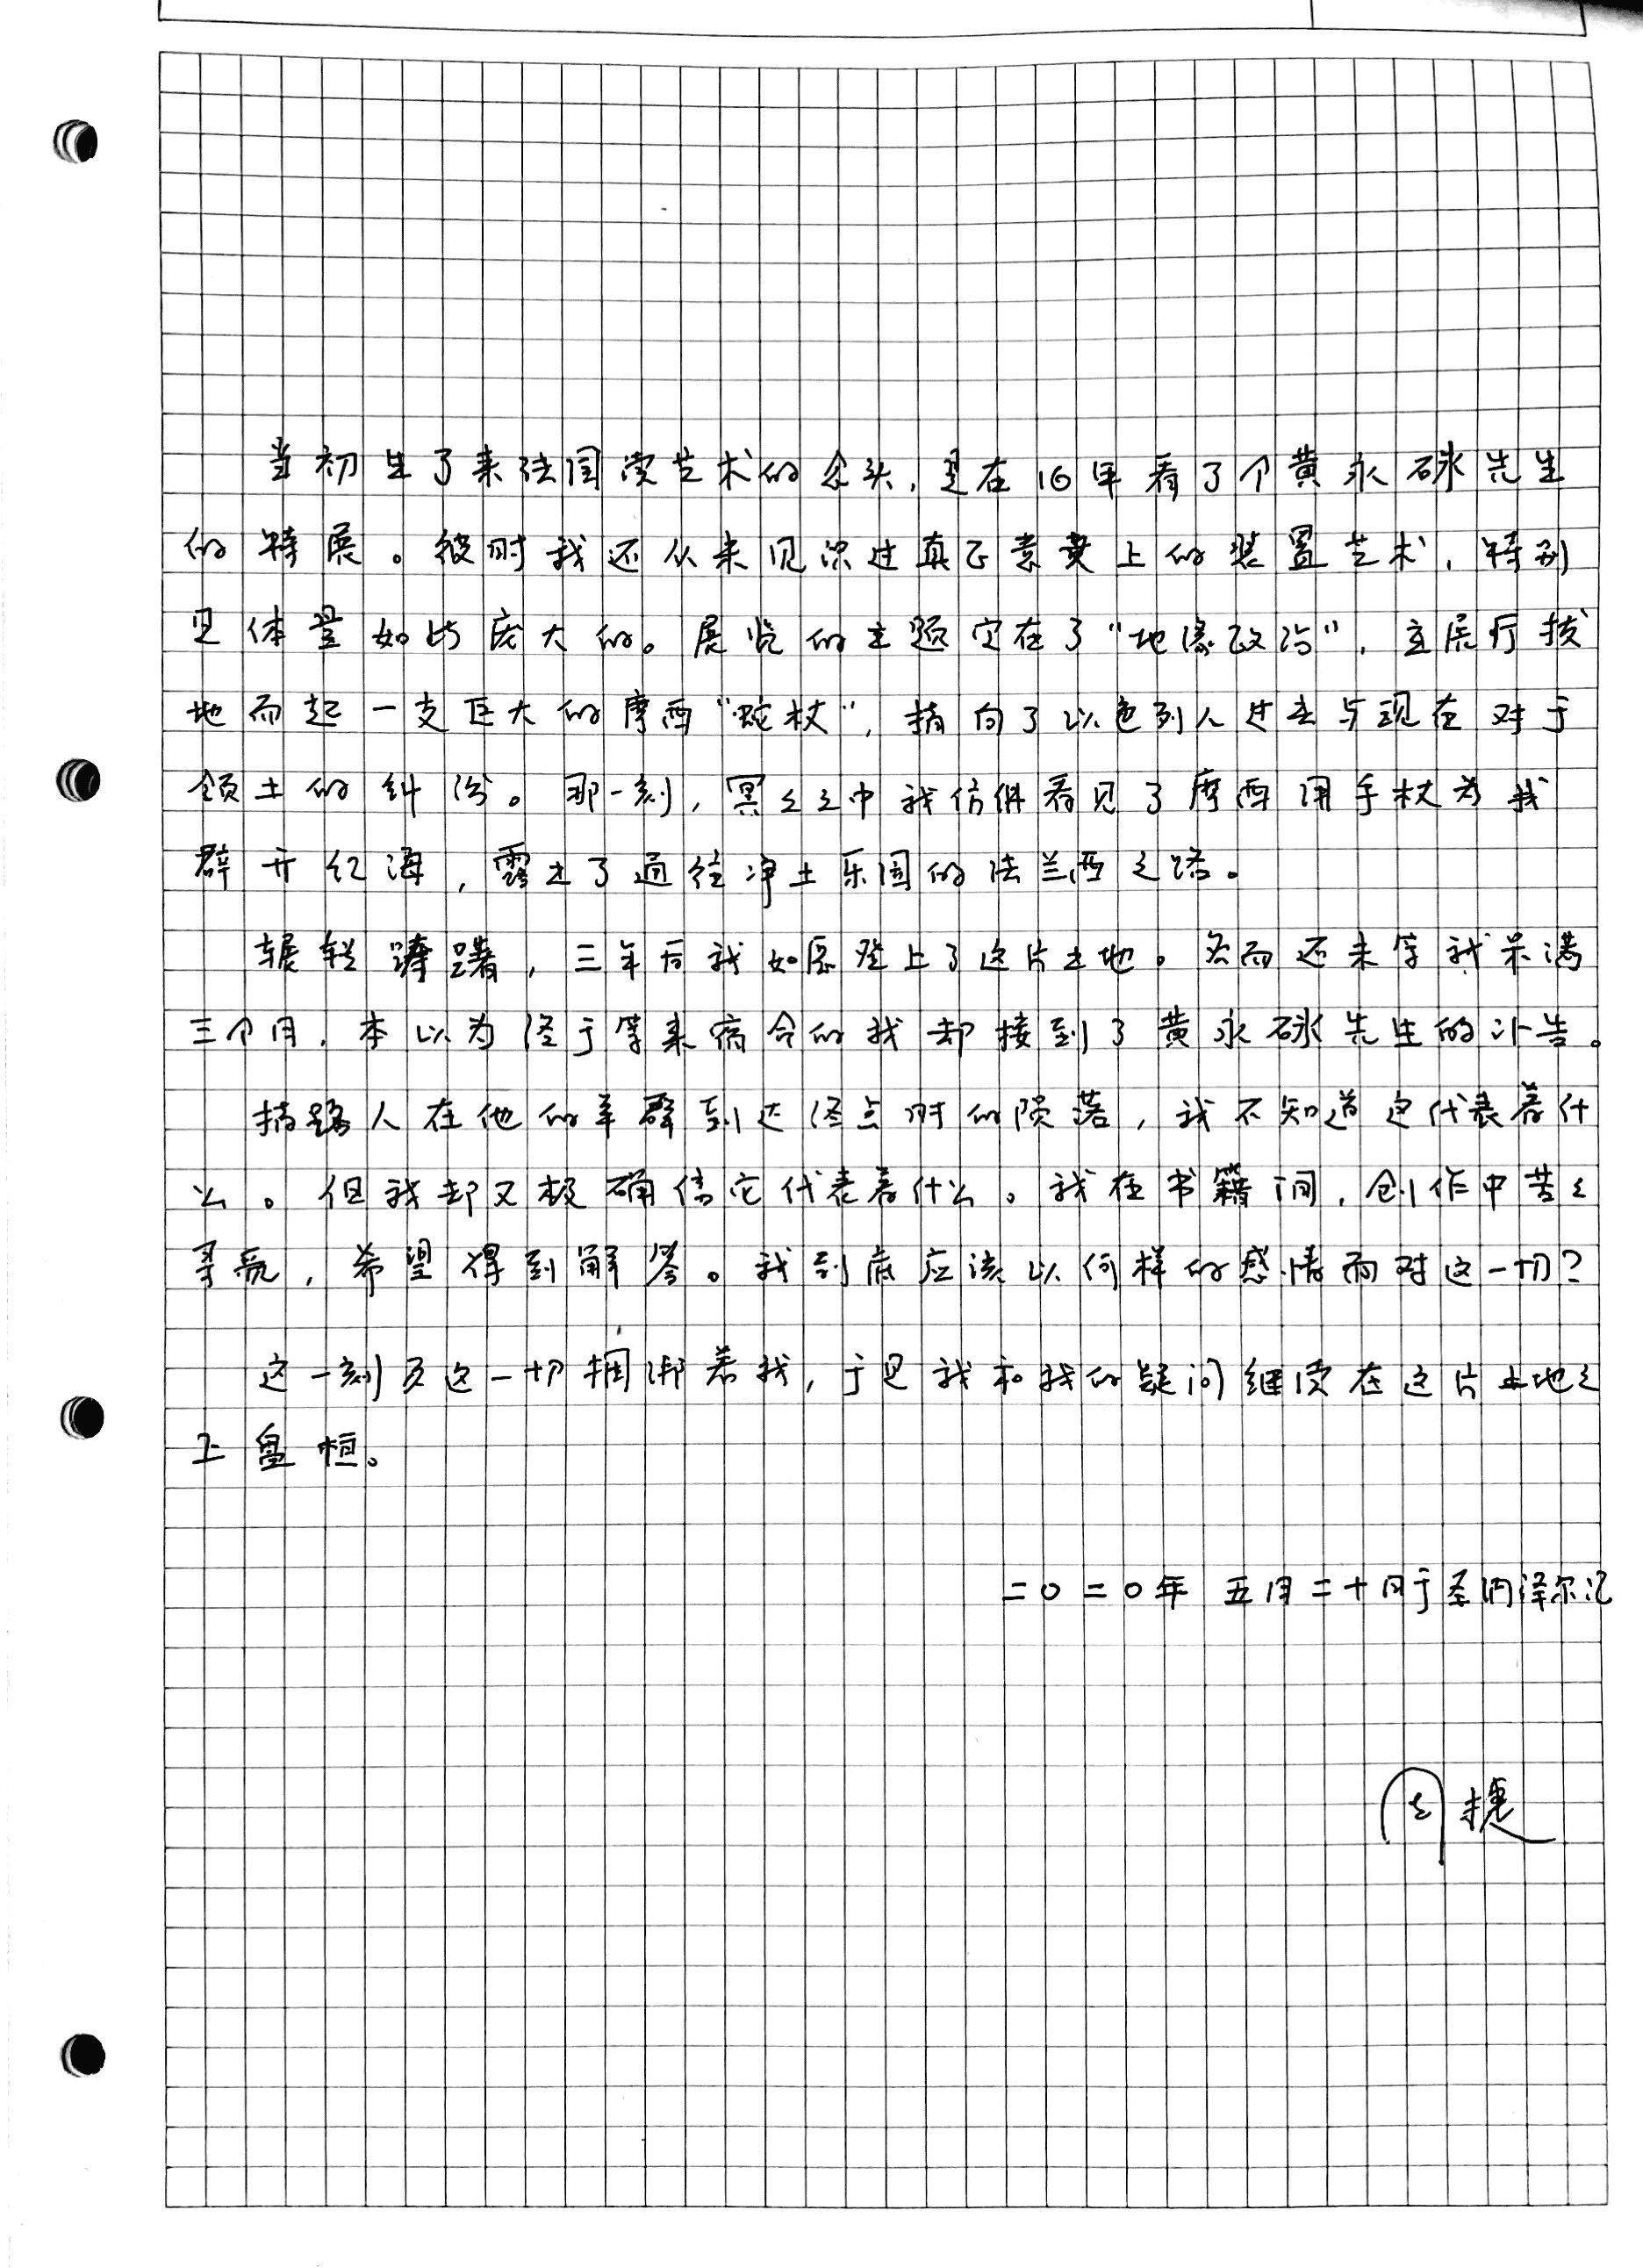 当初生了来法国读艺术的念头，是在16年看了个黄永砯先生
的特展。彼时我还从未见识过真正意义上的装置艺术，特别
是体量如此庞大的。展览的主题定在了“地缘政治”，主展厅拔
地而起一支巨大的摩西“蛇杖”，指向了以色列人过去与现在对于
领土的纠纷。那一刻，冥々之中我仿佛看见了摩西用手杖为我
辟开红海，露出了通往净土乐园的法兰西之路。
辗转踌躇，三年后我如愿登上了这片土地。然而还未等我呆满
三个月，本以为终于等来宿命的我却接到了黄永砯先生的讣告。
指路人在他的羊群到达终点时的陨落，我不知道这代表着什
么。但我却又极确信它代表着什么。我在书籍间，创作中苦々
寻觅，希望得到解答。我到底应该以何样的感情面对这一切？
这一刻及这一切捆绑着我，于是我和我的疑问继续在这片土地之
上盘桓。
二〇二〇年 五月二十日于圣纳泽尔记
周捷